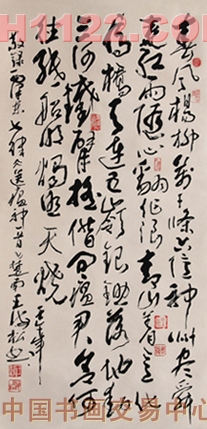 H1122.COM
春风杨柳万千条六亿神州尽舜
尧红雨随心翻作浪青山着意化
为桥天连五岭银锄落地动
三河铁臂摇借问瘟君欲何
往纸船明烛照天烧
敬录毛泽东七律送瘟神一首
中国书画交易中心